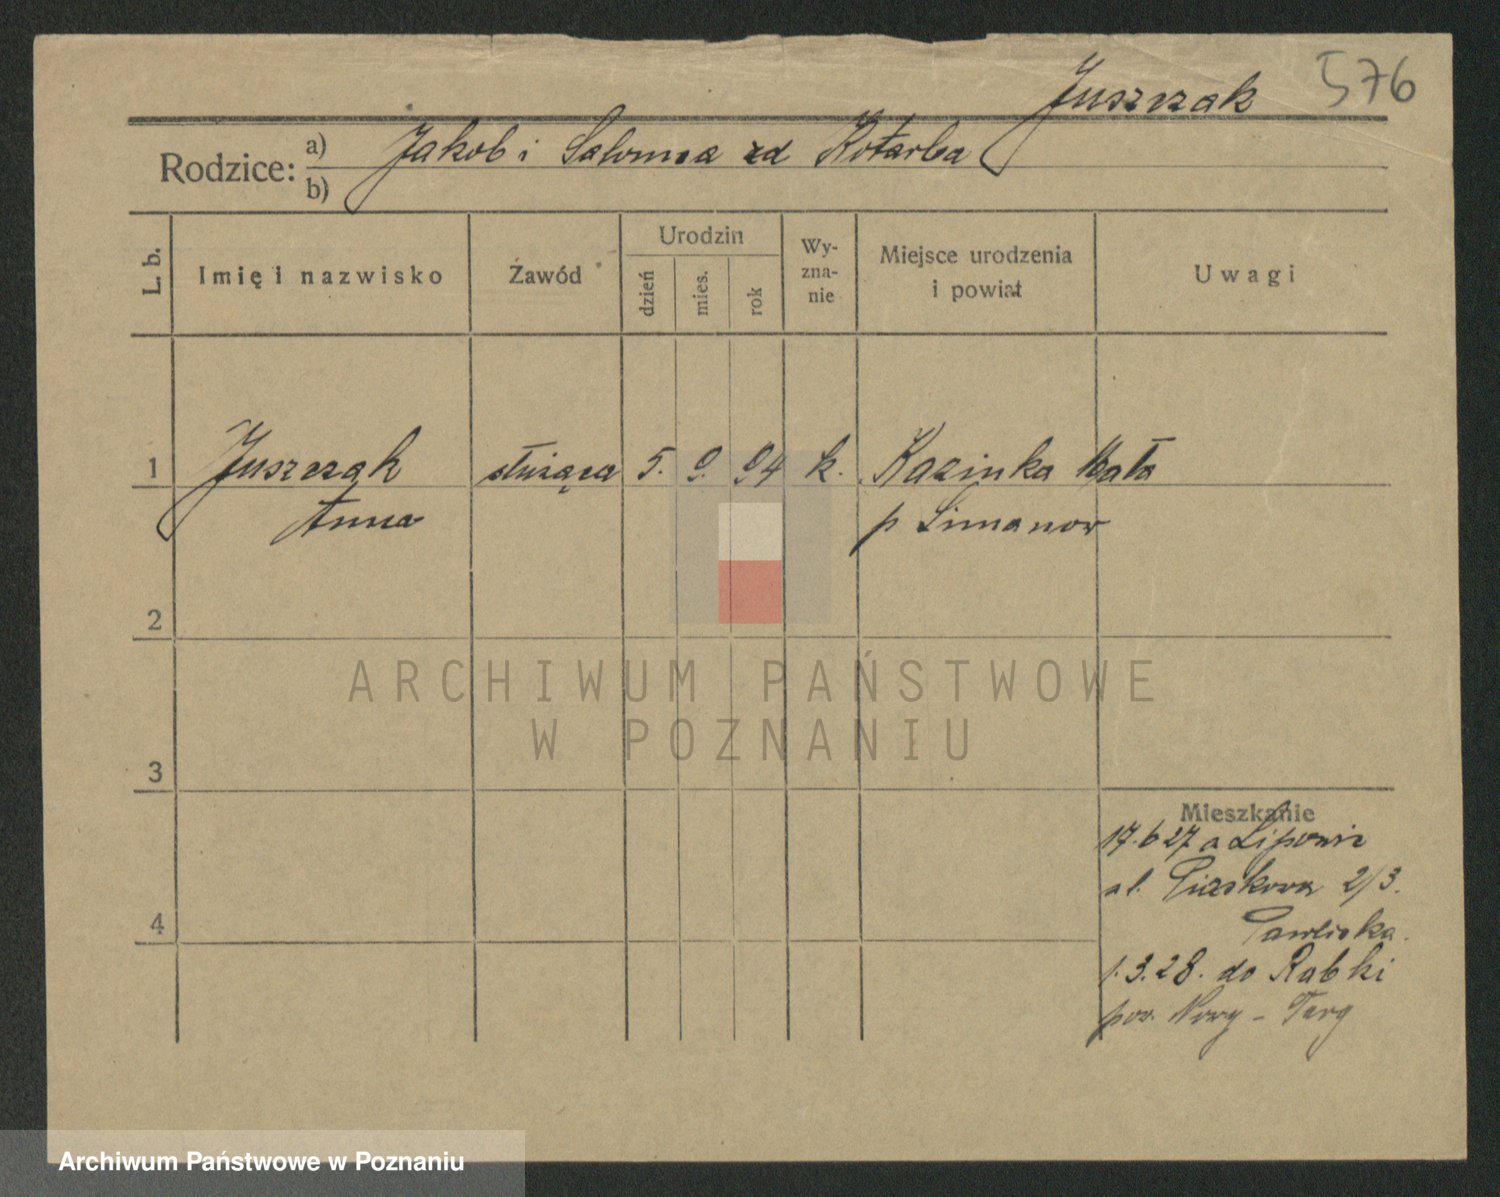 576
Juszczak
Rodzice: a) Jakob i Salomea zd Kotarba
b)
L. b. Imię i nazwisko Zawód Urodzin dzień mies. rok Wyznanie Miejsce urodzenia i powiat Uwagi
1 Juszczak służąca 5. 9. 94 k. Kazinka Mała
Anna p Limanow
2
ARCHIWUM PAŃSTWOWE
W POZNANIU
3
Mieszkanie
17.6 27 a Lipowiz
ul. Piaskowa 2/3.
4
1.3.28. do Rabki
pow. Nowy-Targ
Archiwum Państwowe w Poznaniu